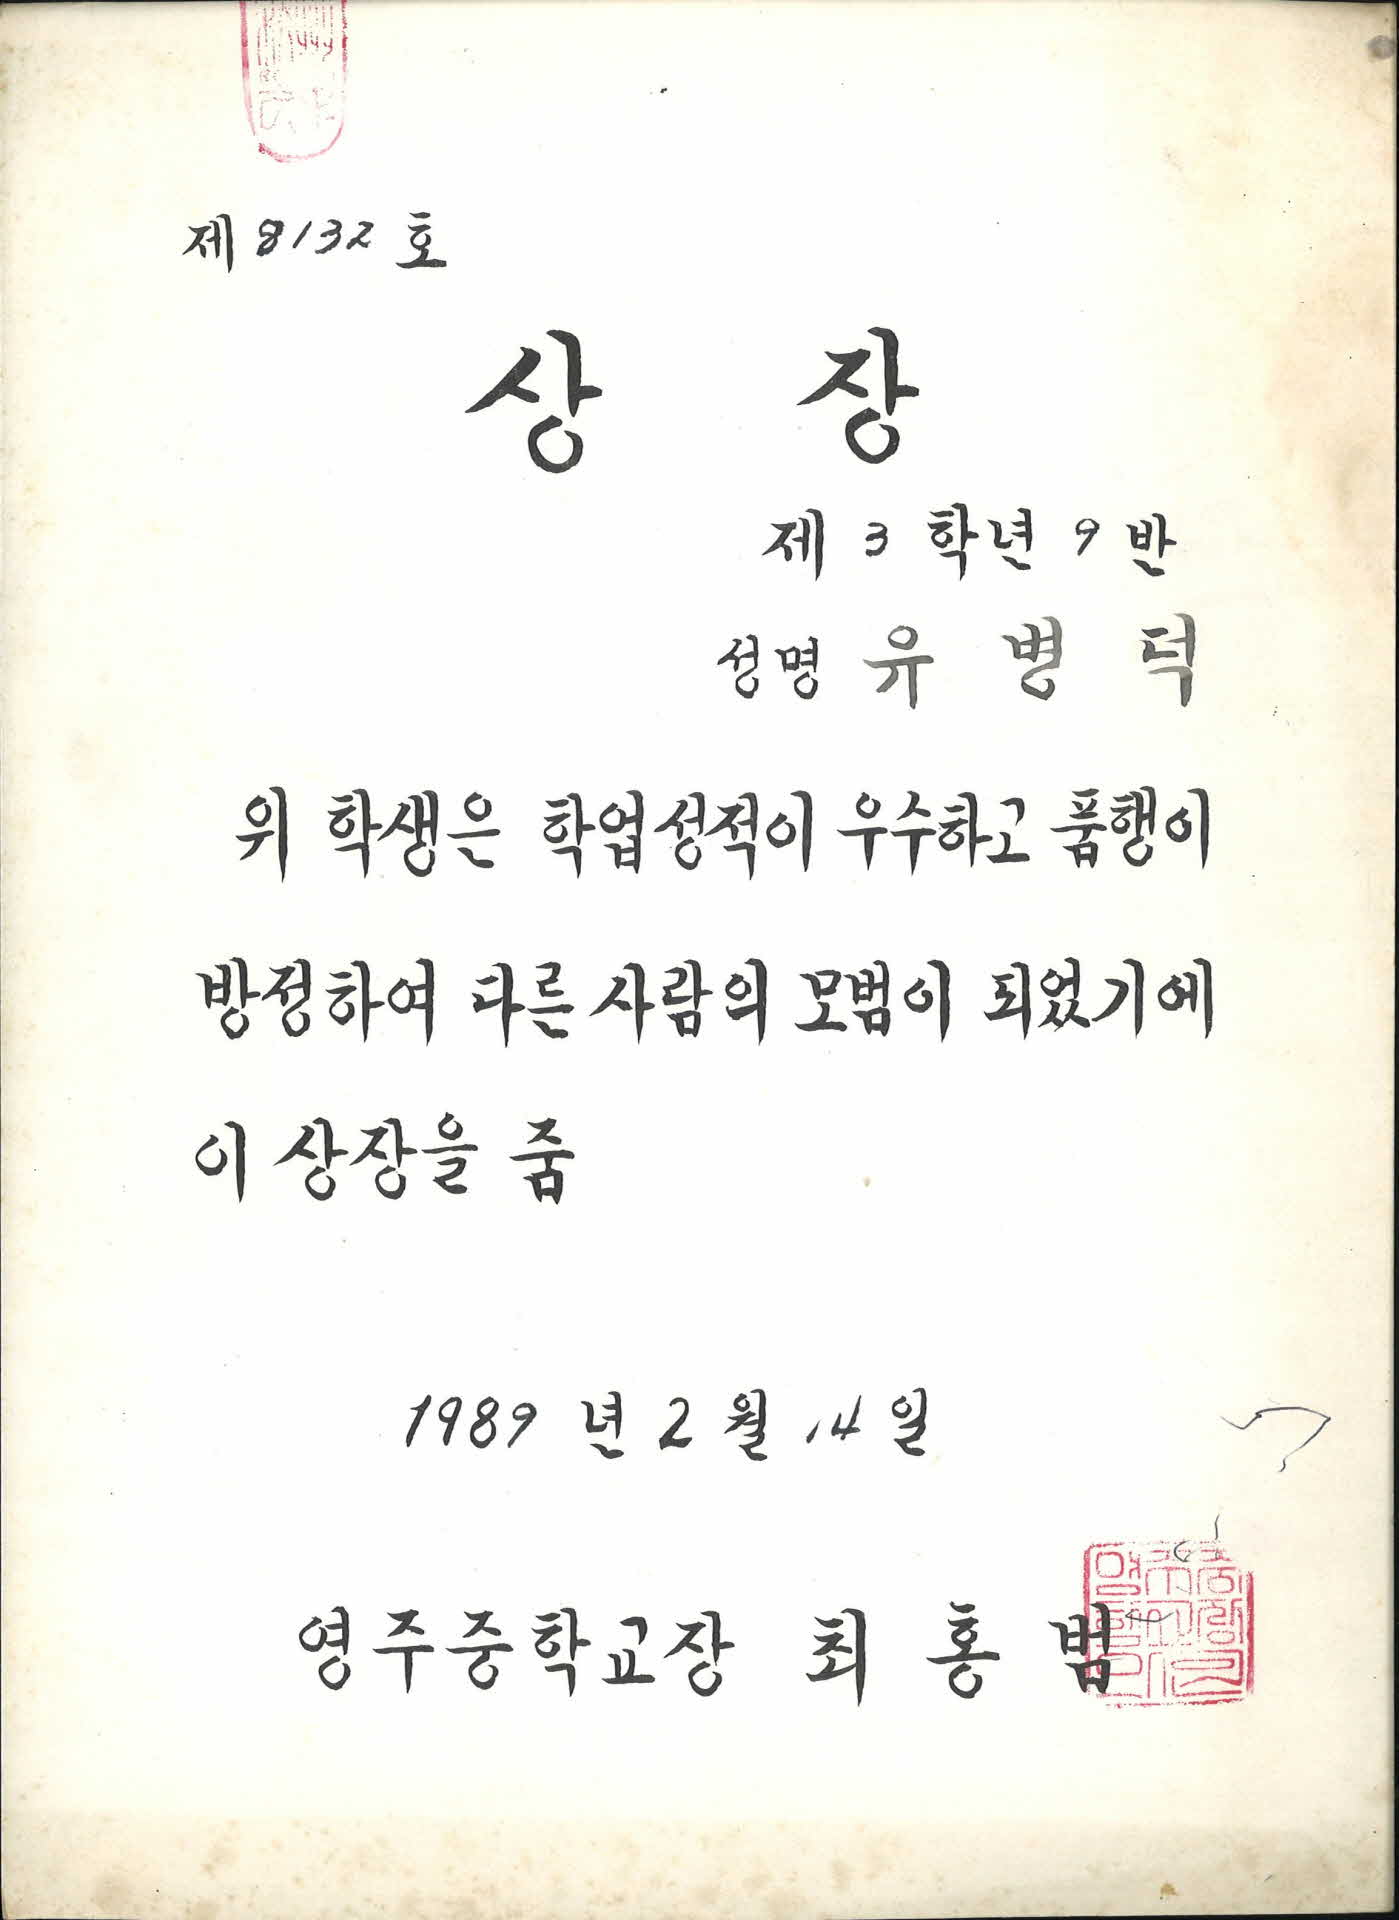 제 8132 호
상 장
제 3 학년 9 반
성명 유 병 덕
위 학생은 학업성적이 우수하고 품행이
방정하여 다른 사람의 모범이 되었기에
이 상장을 줌
1989 년 2 월 14 일
영주중학교장 최 홍 범